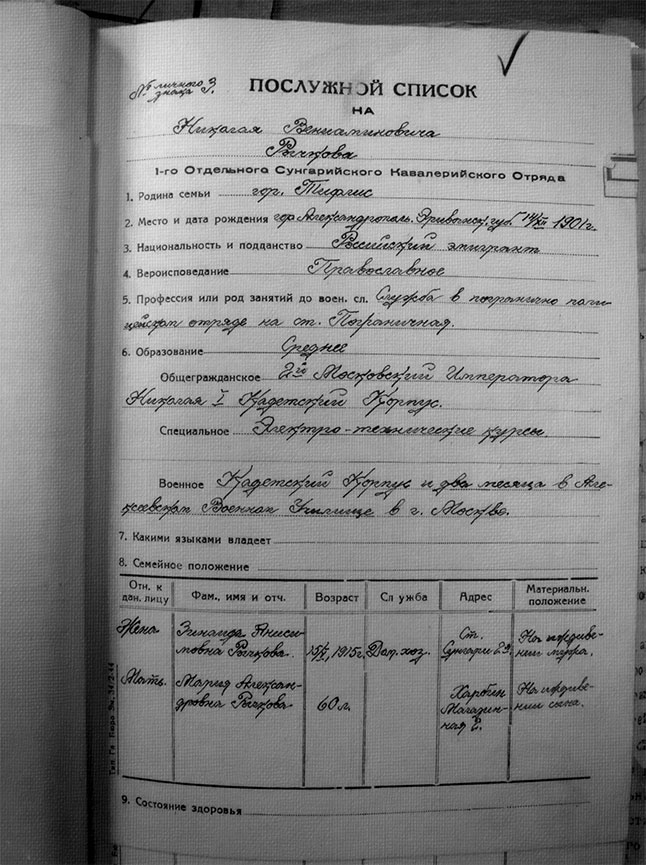 № личного
знака 3.
ПОСЛУЖНОЙ СПИСОК
НА
Николая Вениаминовича
Рычкова
1-го Отдельного Сунгарийского Кавалерийского Отряда
1. Родина семьи гор. Тифлис
2. Место и дата рождения гор. Александрополь. Эриванск. губ. 14/XII 1901 г.
3. Национальность и подданство Российский эмигрант
4. Вероисповедание Православное
5. Профессия или род занятий до воен. сл. Служба в погранично поли-
цейском отряде на ст. Пограничная.
6. Образование Среднее
Общегражданское 2й Московский Императора
Николая I Кадетский Корпус.
Специальное Электро-технические курсы.
Военное Кадетский Корпус и два месяца в Але-
ксеевском Военном Училище в г. Москве.
7. Какими языками владеет
8. Семейное положение
Отн. к дан. лицу Фам., имя и отч. Возраст Служба Адрес Материальн. положение
Жена Зинаида Аниси- Ст. На иждиве-
мовна Рычкова. 1915 г. Дом. хоз. Сунгари 2я. нии мужа.
Мать. Мария Алексан- 60 л. Харбин На иждиве-
дровна Рычкова Магазин- нии сына.
ная 2.
9. Состояние здоровья